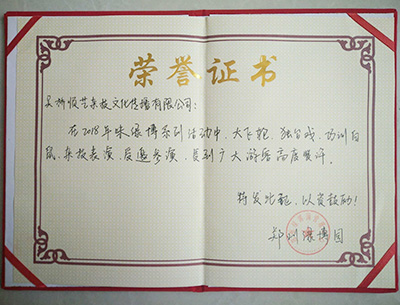 荣誉证书
吴桥恒艺杂技文化传播有限公司:
在2018年味绿博系列活动中,大飞轮、独台戏、巧训白
鼠、杂技表演,受邀参演,受到广大游客高度赞评。
特发此证,以资鼓励!
郑州绿博园